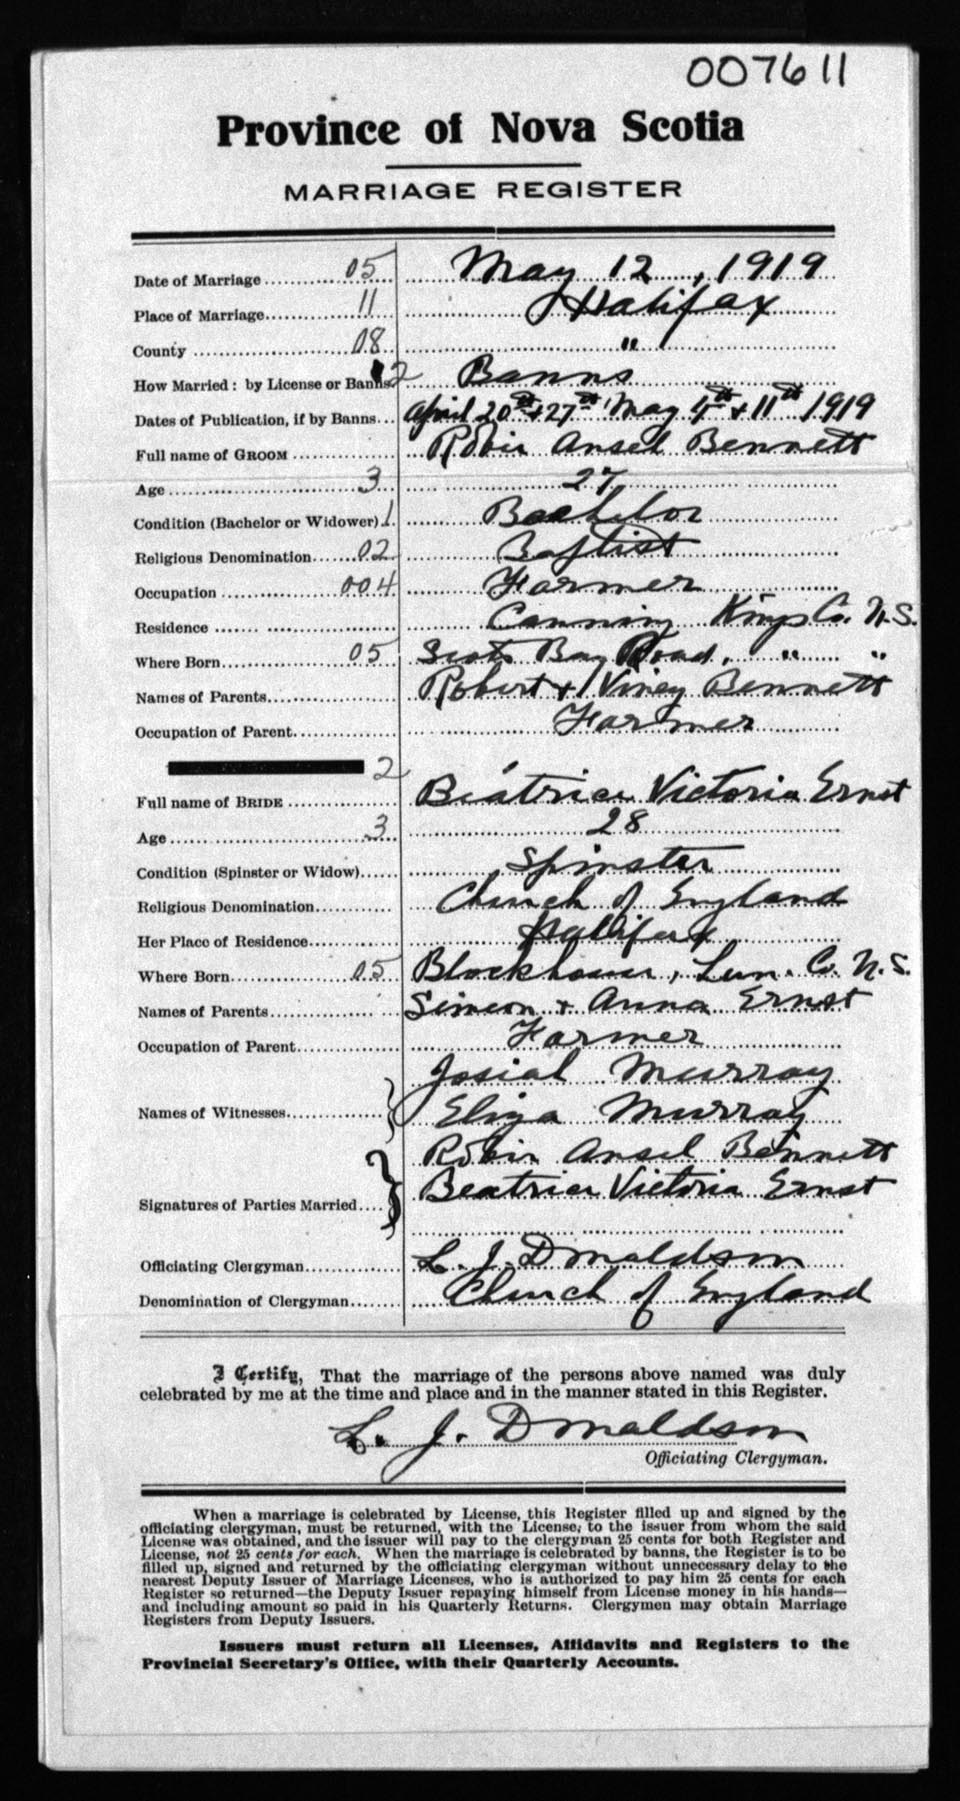 007611
Province of Nova Scotia
MARRIAGE REGISTER
Date of Marriage 05 May 12, 1919
Place of Marriage 11 Halifax
County 08 "
How Married: by License or Banns. 2 Banns
Dates of Publication, if by Banns April 20th + 27th May 4th + 11th 1919
Full name of GROOM Robie Ansel Bennett
Age 3 27
Condition (Bachelor or Widower) 1 Bachelor
Religious Denomination 02 Baptist
Occupation 004 Farmer
Residence Canning Kings Co. N.S.
Where Born 05 Scots Bay Road, " "
Names of Parents Robert + Viney Bennett
Occupation of Parent Farmer
2
Full name of BRIDE Beatrice Victoria Ernst
Age 3 28
Condition (Spinster or Widow) Spinster
Religious Denomination Church of England
Her Place of Residence Halifax
Where Born 05 Blockhouse, Lun. Co. N.S.
Names of Parents Simeon + Anna Ernst
Occupation of Parent Farmer
Josiah Murray
Names of Witnesses Eliza Murray
Robie Ansel Bennett
Signatures of Parties Married Beatrice Victoria Ernst
Officiating Clergyman L. J. Donaldson
Denomination of Clergyman Church of England
I Certify, That the marriage of the persons above named was duly
celebrated by me at the time and place and in the manner stated in this Register.
L. J. Donaldson
Officiating Clergyman.
When a marriage is celebrated by License, this Register filled up and signed by the
officiating clergyman, must be returned, with the License, to the issuer from whom the said
License was obtained, and the issuer will pay to the clergyman 25 cents for both Register and
License, not 25 cents for each. When the marriage is celebrated by banns, the Register is to be
filled up, signed and returned by the officiating clergyman without unnecessary delay to the
nearest Deputy Issuer of Marriage Licenses, who is authorized to pay him 25 cents for each
Register so returned—the Deputy Issuer repaying himself from License money in his hands—
and including amount so paid in his Quarterly Returns. Clergymen may obtain Marriage
Registers from Deputy Issuers.
Issuers must return all Licenses, Affidavits and Registers to the
Provincial Secretary's Office, with their Quarterly Accounts.